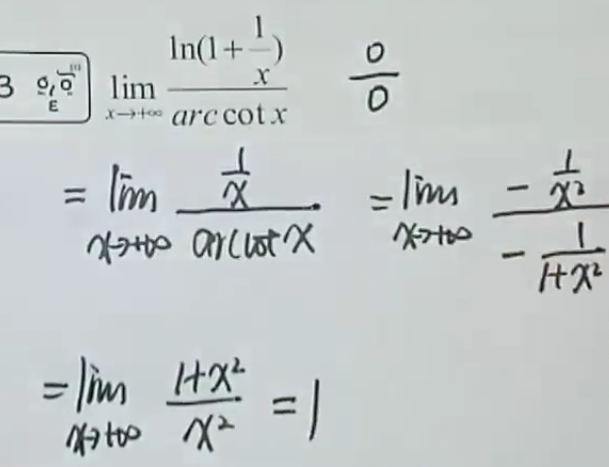 3 lim x→+∞ ln(1+1/x) / arc cot x 0/0
= lim x→+∞ (1/x) / arccot x = lim x→+∞ (-1/x²) / (-1/(1+x²))
= lim x→+∞ (1+x²) / x² = 1